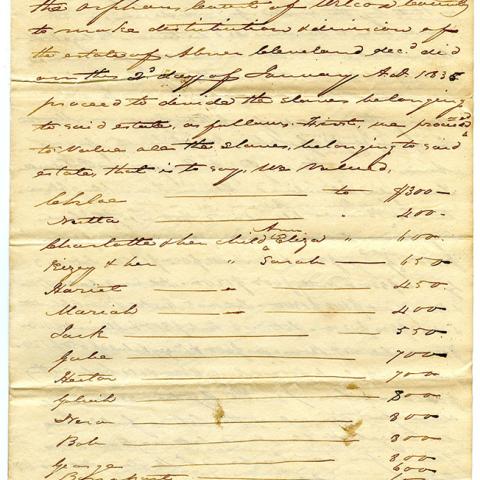 the orphans Court of Wilcox County
to make distribution & division of
the estate of Abner Cleveland decd did
on this 2d day of January A.D. 1835
proceed to divide the slaves belonging
to said estate, as follows. First, we proceeded
to value all the slaves, belonging to said
estate, that is to say, We valued,
Chloe to $300
Netta " 400
Charlotte & her child Ann Eliza " 600
Kizey & her " Sarah 650
Hariet 450
Mariah " 400
Jack 550
Gabe 700
Hector 700
800
Nero 800
Bob 800
George 800
600